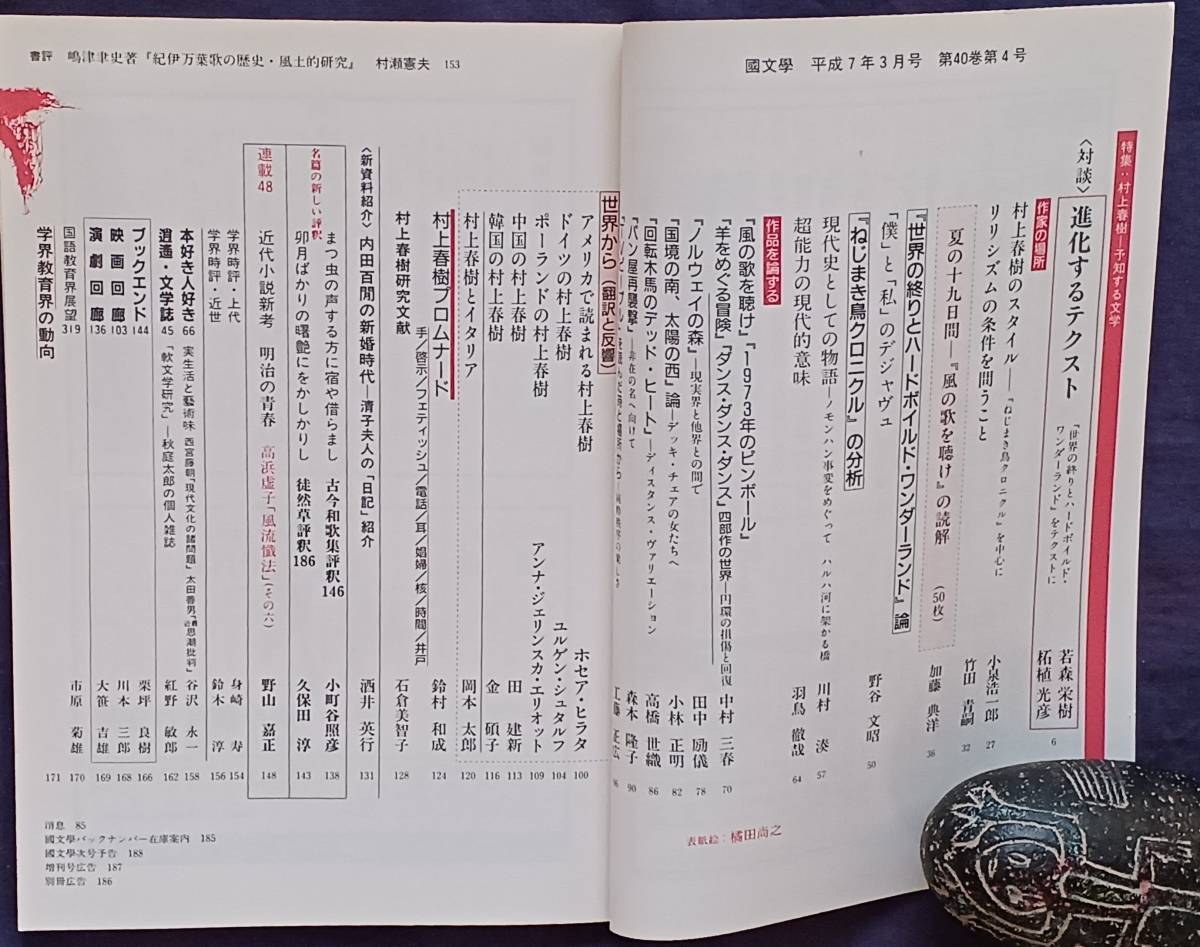 國文學 平成7年3月号 第40巻第4号
特集:村上春樹―予知する文学
〈対談〉進化するテクスト 『世界の終りとハードボイルド・ワンダーランド』をテクストに 若森栄樹 柘植光彦 6
作家の場所
村上春樹のスタイル―『ねじまき鳥クロニクル』を中心に 小泉浩一郎 27
リリシズムの条件を問うこと 竹田 青嗣 32
夏の十九日間―『風の歌を聴け』の読解 (50枚) 加藤 典洋 36
『世界の終りとハードボイルド・ワンダーランド』論
「僕」と「私」のデジャヴュ 野谷 文昭 50
『ねじまき鳥クロニクル』の分析
現代史としての物語―ノモンハン事変をめぐって ハルハ河に架かる橋 川村 湊 57
超能力の現代的意味 羽鳥 徹哉 64
作品を論ずる
『風の歌を聴け』『1973年のピンボール』
『羊をめぐる冒険』『ダンス・ダンス・ダンス』四部作の世界―円環の損傷と回復 中村 三春 70
『ノルウェイの森』―現実界と他界との間で 田中 励儀 78
『国境の南、太陽の西』論―デッキ・チェアの女たちへ 小林 正明 82
『回転木馬のデッド・ヒート』―ディスタンス・ヴァリエーション 高橋 世織 86
『パン屋再襲撃』―非在の名へ向けて 森本 隆子 90
表紙絵:橘田尚之
世界から(翻訳と反響)
アメリカで読まれる村上春樹 ホセア・ヒラタ 100
ドイツの村上春樹 ユルゲン・シュタルフ 104
ポーランドの村上春樹 アンナ・ジェリンスカ・エリオット 109
中国の村上春樹 田 建新 113
韓国の村上春樹 金 碩子 116
村上春樹とイタリア 岡本 太郎 120
村上春樹プロムナード 手/啓示/フェティッシュ/電話/耳/娼婦/核/時間/井戸 鈴村 和成 124
村上春樹研究文献 石倉美智子 128
〈新資料紹介〉内田百閒の新婚時代―清子夫人の「日記」紹介 酒井 英行 131
名篇の新しい評釈
まつ虫の声する方に宿や借らまし 古今和歌集評釈146 小町谷照彦 138
卯月ばかりの曙艶にをかしかりし 徒然草評釈186 久保田 淳 143
連載48 近代小説新考 明治の青春 高浜虚子「風流懺法」(その六) 野山 嘉正 148
書評 嶋津聿史著『紀伊万葉歌の歴史・風土的研究』 村瀬憲夫 153
学界時評・上代 身崎 寿 154
学界時評・近世 鈴木 淳 156
本好き人好き66 実生活と藝術味 西宮藤朝「現代文化の諸問題」 谷沢 永一 158
逍遥・文学誌45 「軟文学研究」―秋庭太郎の個人雑誌 紅野 敏郎 162
ブックエンド144 栗坪 良樹 166
映画回廊103 川本 三郎 168
演劇回廊136 大笹 吉雄 169
国語教育界展望319 市原 菊雄 170
学界教育界の動向 171
消息 85
國文學バックナンバー在庫案内 185
國文學次号予告 188
増刊号広告 187
別冊広告 186